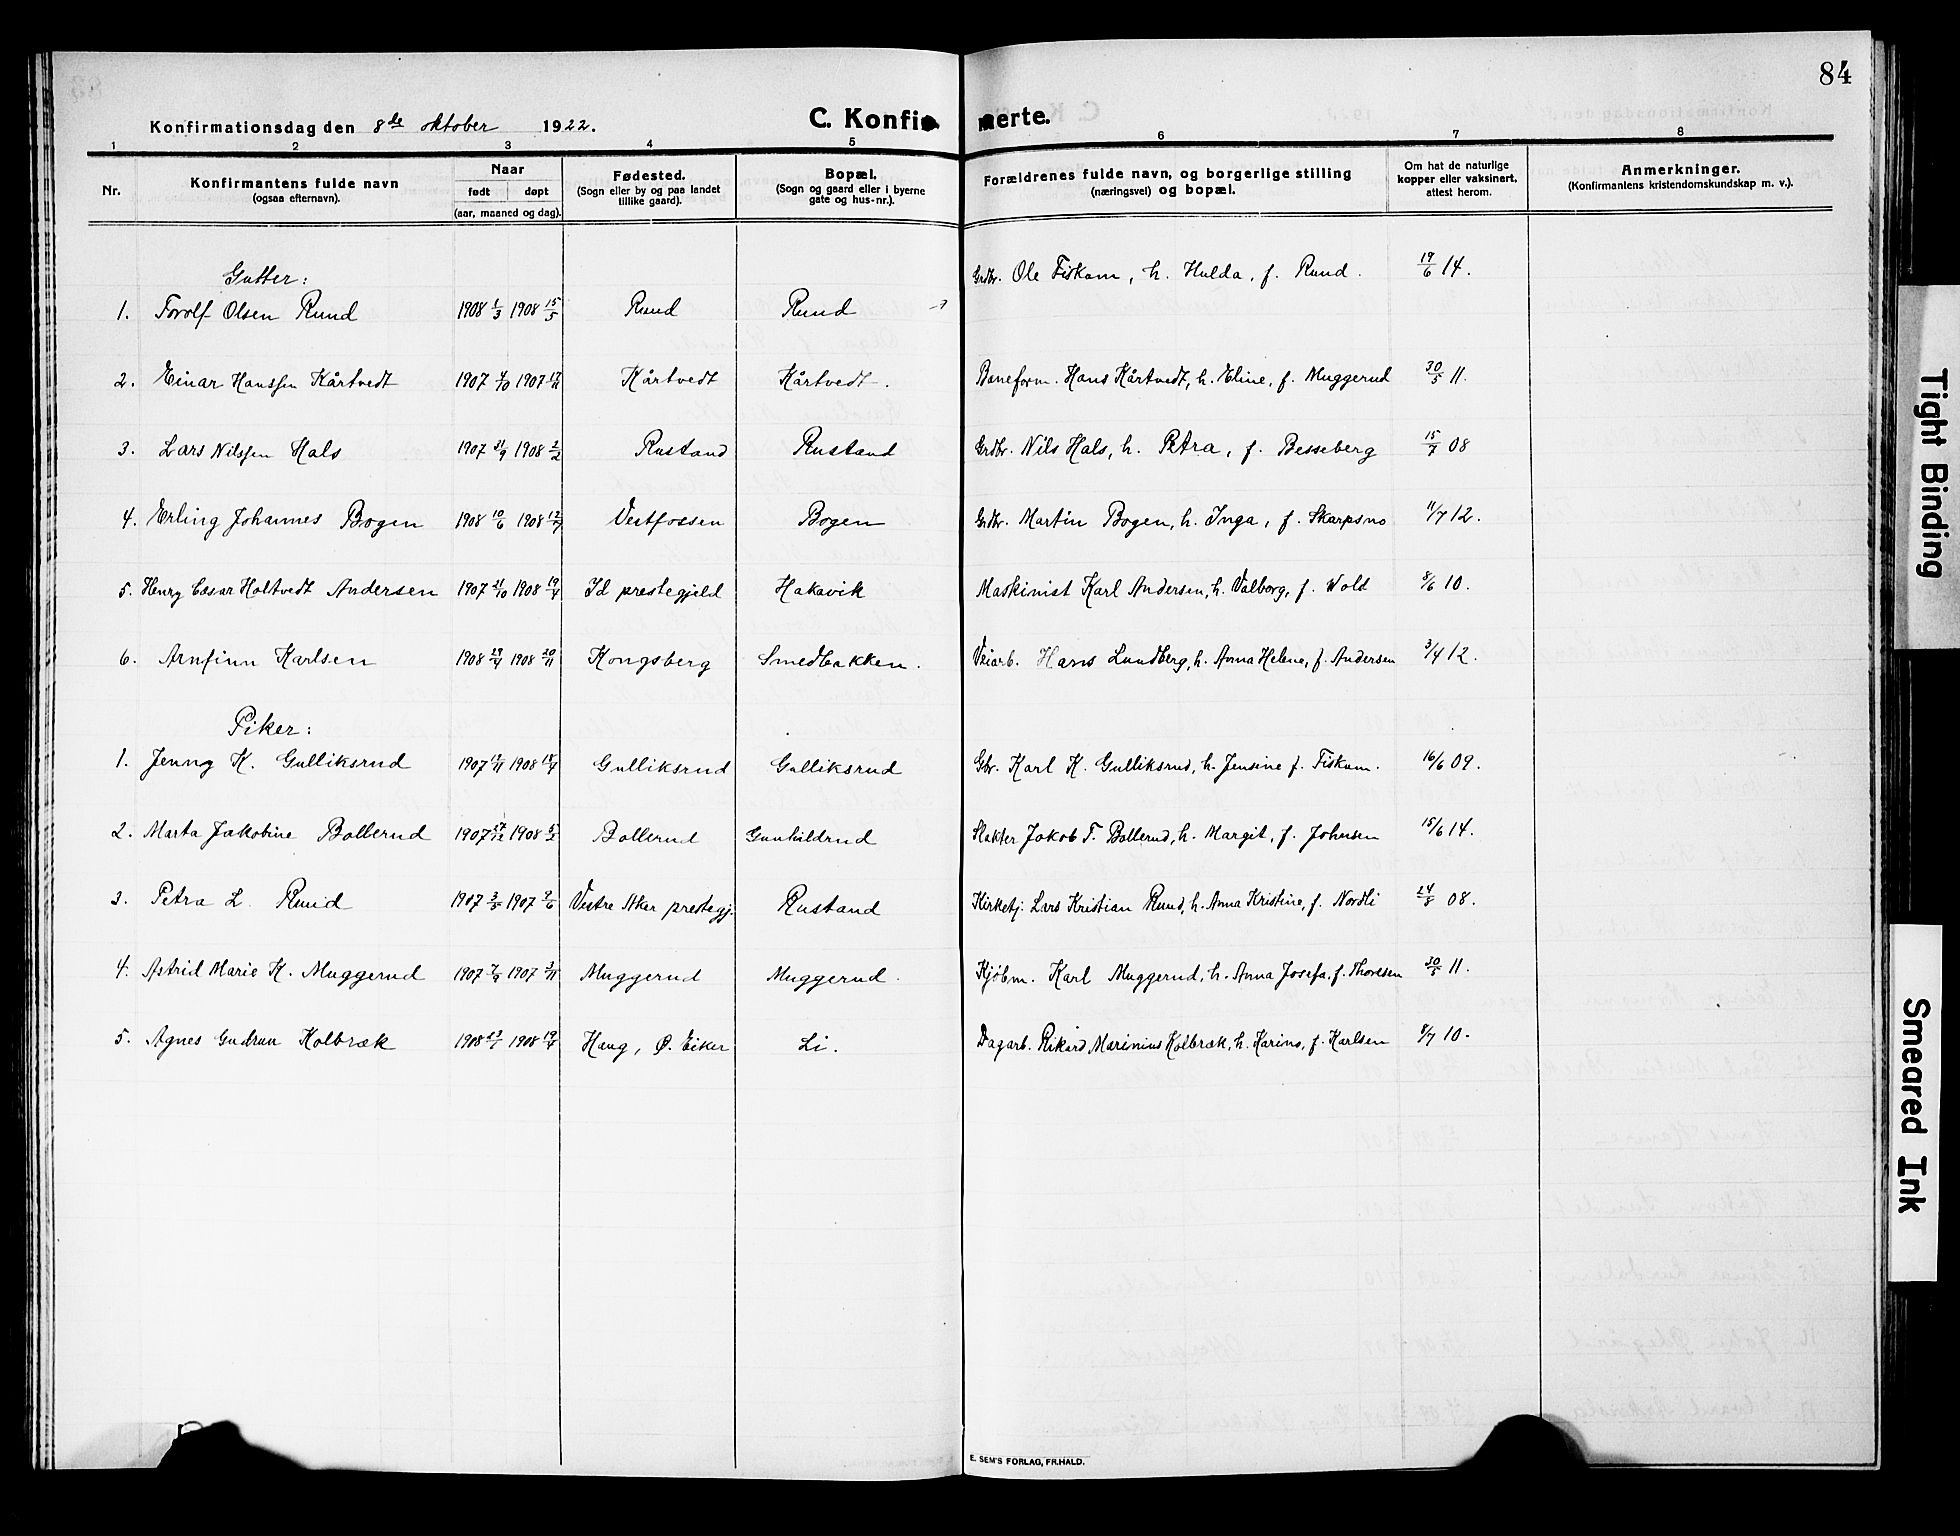 84
Konfirmationsdag den 8de oktober 1922.
C. Konfir merte.
1 2 3 4 5 6 7 8
Nr.
Konfirmantens fulde navn
(ogsaa efternavn).
Naar
født døpt
(aar, maaned og dag).
Fødested.
(Sogn eller by og paa landet
tillike gaard).
Bopæl.
(Sogn og gaard eller i byerne
gate og hus-nr.).
Forældrenes fulde navn, og borgerlige stilling
(næringsvei) og bopæl.
Om hat de naturlige
kopper eller vaksinert,
attest herom.
Anmerkninger.
(Konfirmantens kristendomskundskap m. v.).
Gutter:
1. Torolf Olsen Ruud 1908 1/3 1908 15/5 Ruud Ruud Grdbr. Ole Fiskum, h. Hulda, f. Ruud. 19/6 14.
2. Einar Hanssen Kårtvedt 1907 1907 Kårtvedt Kårtvedt. Baneform. Hans Kårtvedt, h. Eline, f. Muggerud 30/5 11.
3. Lars Nilssen Hals 1907 1908 2/2 Rustand Rustand Grdbr. Nils Hals, h. Petra, f. Besseberg 15/7 08
4. Erling Johannes Bogen 1908 10/6 1908 12/7 Vestfossen Bogen Grdbr. Martin Bogen, h. Inga, f. Skarpsno 11/7 12.
5. Henry Cæsar Holtvedt Andersen 1907 21/10 1908 19/4 Id prestegjeld Hakavik Maskinist Karl Andersen, h. Valborg, f. Wold 8/6 10.
6. Arnfinn Karlsen 1908 29/4 1908 Kongsberg Smedbakken. Veiarb. Hans Lundberg, h. Anna Helene, f. Andersen 3/4 12.
Piker:
1. Jenny K. Gulliksrud 1907 1908 Gulliksrud Gulliksrud Gbr. Karl K. Gulliksrud, h. Jensine f. Fiskum. 16/6 09.
2. Marta Jakobine Bollerud 1907 27/12 1908 Bollerud Gunhildrud Slakter Jakob T. Bollerud, h. Margit, f. Johnsen 15/6 14.
3. Petra L. Ruud 1907 1907 9/6 Vestre Aker prestegj. Rustand Kirketj. Lars Kristian Ruud, h. Anna Kristine, f. Nordli 24/8 08.
4. Astrid Marie K. Muggerud 1907 1907 3/11 Muggerud Muggerud. Kjøbm. Karl Muggerud, h. Anna Josefa, f. Thoresen 30/5 11.
5. Agnes Gudrun Kolbræk 1908 1908 19/4 Haug, Ø. Eiker Li. Dagarb. Rikard Marinius Kolbræk, h. Karine, f. Karlsen 8/7 10.
E. SEM'S FORLAG, FR.HALD.
Tight Binding
Smeared Ink